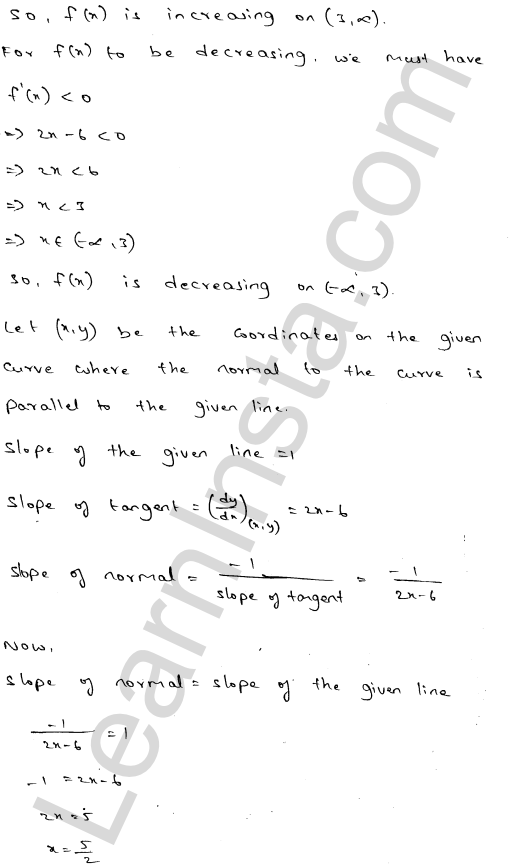 So, f(x) is increasing on (3,∞).
For f(x) to be decreasing, we must have
f'(x) < 0
=> 2x-6 < 0
=> 2x < 6
=> x < 3
=> x ∈ (-∞, 3)
So, f(x) is decreasing on (-∞, 3).
Let (x,y) be the coordinates on the given
curve where the normal to the curve is
parallel to the given line.
Slope of the given line = 1
Slope of tangent = (dy/dx)(x,y) = 2x-6
Slope of normal = -1/slope of tangent = -1/2x-6
Now,
Slope of normal = slope of the given line
-1/2x-6 = 1
-1 = 2x-6
2x = 5
x = 5/2
LearnInsta.com